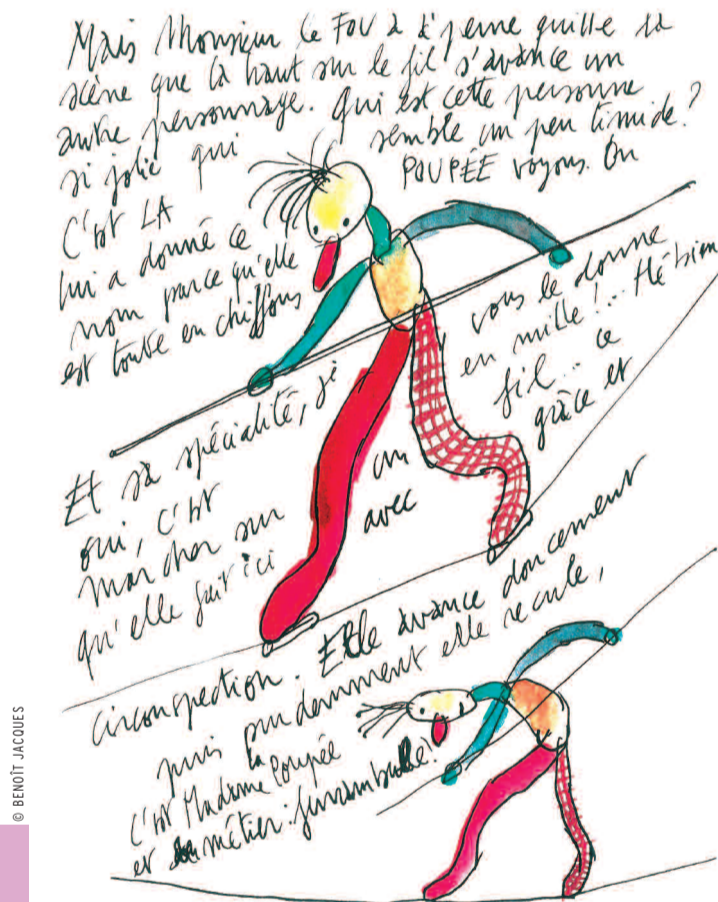 Mais Monsieur le FOU a à peine quitté la
scène que là haut sur le fil s'avance un
autre personnage. Qui est cette personne
si jolie qui semble un peu timide?
C'est LA POUPÉE voyons. On
lui a donné ce
nom parce qu'elle
est toute en chiffons
Et sa spécialité, je vous le donne
en mille!.. Hé bien
oui, c'est
marcher sur un fil.. ce
qu'elle fait ici avec grâce et
circonspection. Elle avance doucement
puis prudemment elle recule,
C'est Madame la Poupée
et son métier: funambule!
© BENOÎT JACQUES